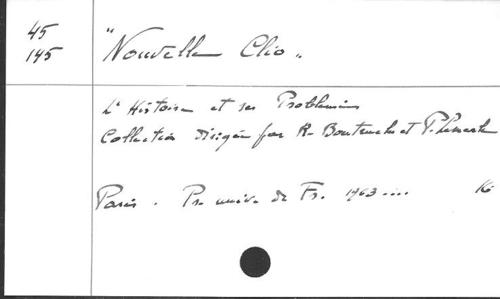 45
145
"Nouvelle Clio"
L'Histoire et ses Problèmes
Collection dirigée par R. Boutruche et P. Lemerle
Paris. Pr. univ. de Fr. 1963 ... 16